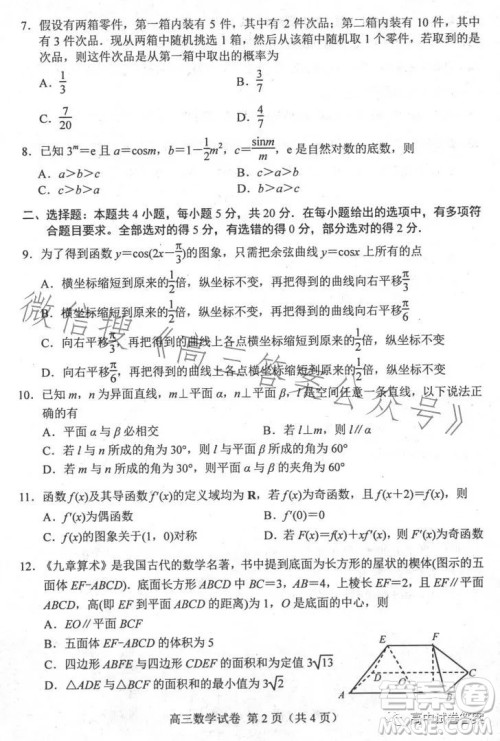 7. 假设有两箱零件，第一箱内装有 5 件，其中有 2 件次品；第二箱内装有 10 件，其中
有 3 件次品．现从两箱中随机挑选 1 箱，然后从该箱中随机取 1 个零件，若取到的是
次品，则这件次品是从第一箱中取出的概率为
A．1/3 B．3/7
C．7/20 D．4/7
8. 已知 3^m＝e 且 a＝cosm，b＝1－1/2 m²，c＝sinm/m，e 是自然对数的底数，则
A．a＞b＞c B．a＞c＞b
C．c＞b＞a D．c＞a＞b
二、选择题：本题共 4 小题，每小题 5 分，共 20 分．在每小题给出的选项中，有多项符
合题目要求．全部选对的得 5 分，有选错的得 0 分，部分选对的得 2 分．
9. 为了得到函数 y＝cos(2x－π/3)的图象，只需把余弦曲线 y＝cosx 上所有的点
A．横坐标缩短到原来的1/2倍，纵坐标不变，再把得到的曲线向右平移π/3
B．横坐标缩短到原来的1/2倍，纵坐标不变，再把得到的曲线向右平移π/6
C．向右平移π/3，再把得到的曲线上各点横坐标缩短到原来的1/2倍，纵坐标不变
D．向右平移π/6，再把得到的曲线上各点横坐标缩短到原来的1/2倍，纵坐标不变
10. 已知 m，n 为异面直线，m⊥平面 α，n⊥平面 β，l 是空间任意一条直线，以下说法正
确的有
A．平面 α 与 β 必相交 B．若 l⊥m，则 l∥α
C．若 m 与 n 所成的角为 30°，则平面 α 与 β 的夹角为 60°
D．若 m 与 n 所成的角为 60°，则平面 α 与 β 的夹角为 60°
11. 函数 f(x)及其导函数 f′(x)的定义域均为 R，若 f(x)为奇函数，且 f(x＋2)＝f(x)，则
A．f′(x)为偶函数 B．f′(1)＝0
C．f(x)的图象关于(1，0)对称 D．若 F(x)＝f(x)＋xf′(x)，则 F′(x)为奇函数
12. 《九章算术》是我国古代的数学名著，书中提到底面为长方形的屋状的楔体(图示的五
面体 EF-ABCD)．底面长方形 ABCD 中 BC＝3，AB＝4，上棱长 EF＝2，且 EF∥平面
ABCD，高(即 EF 到平面 ABCD 的距离)为 1，O 是底面的中心，则
A．EO∥平面 BCF
B．五面体 EF-ABCD 的体积为 5
C．四边形 ABFE 与四边形 CDEF 的面积和为定值 3√13
D．△ADE 与△BCF 的面积和的最小值为 3√2
E F
D C
O
A B
高三数学试卷 第 2 页（共 4 页）
微信搜《高三答案公众号》
高中试卷答案